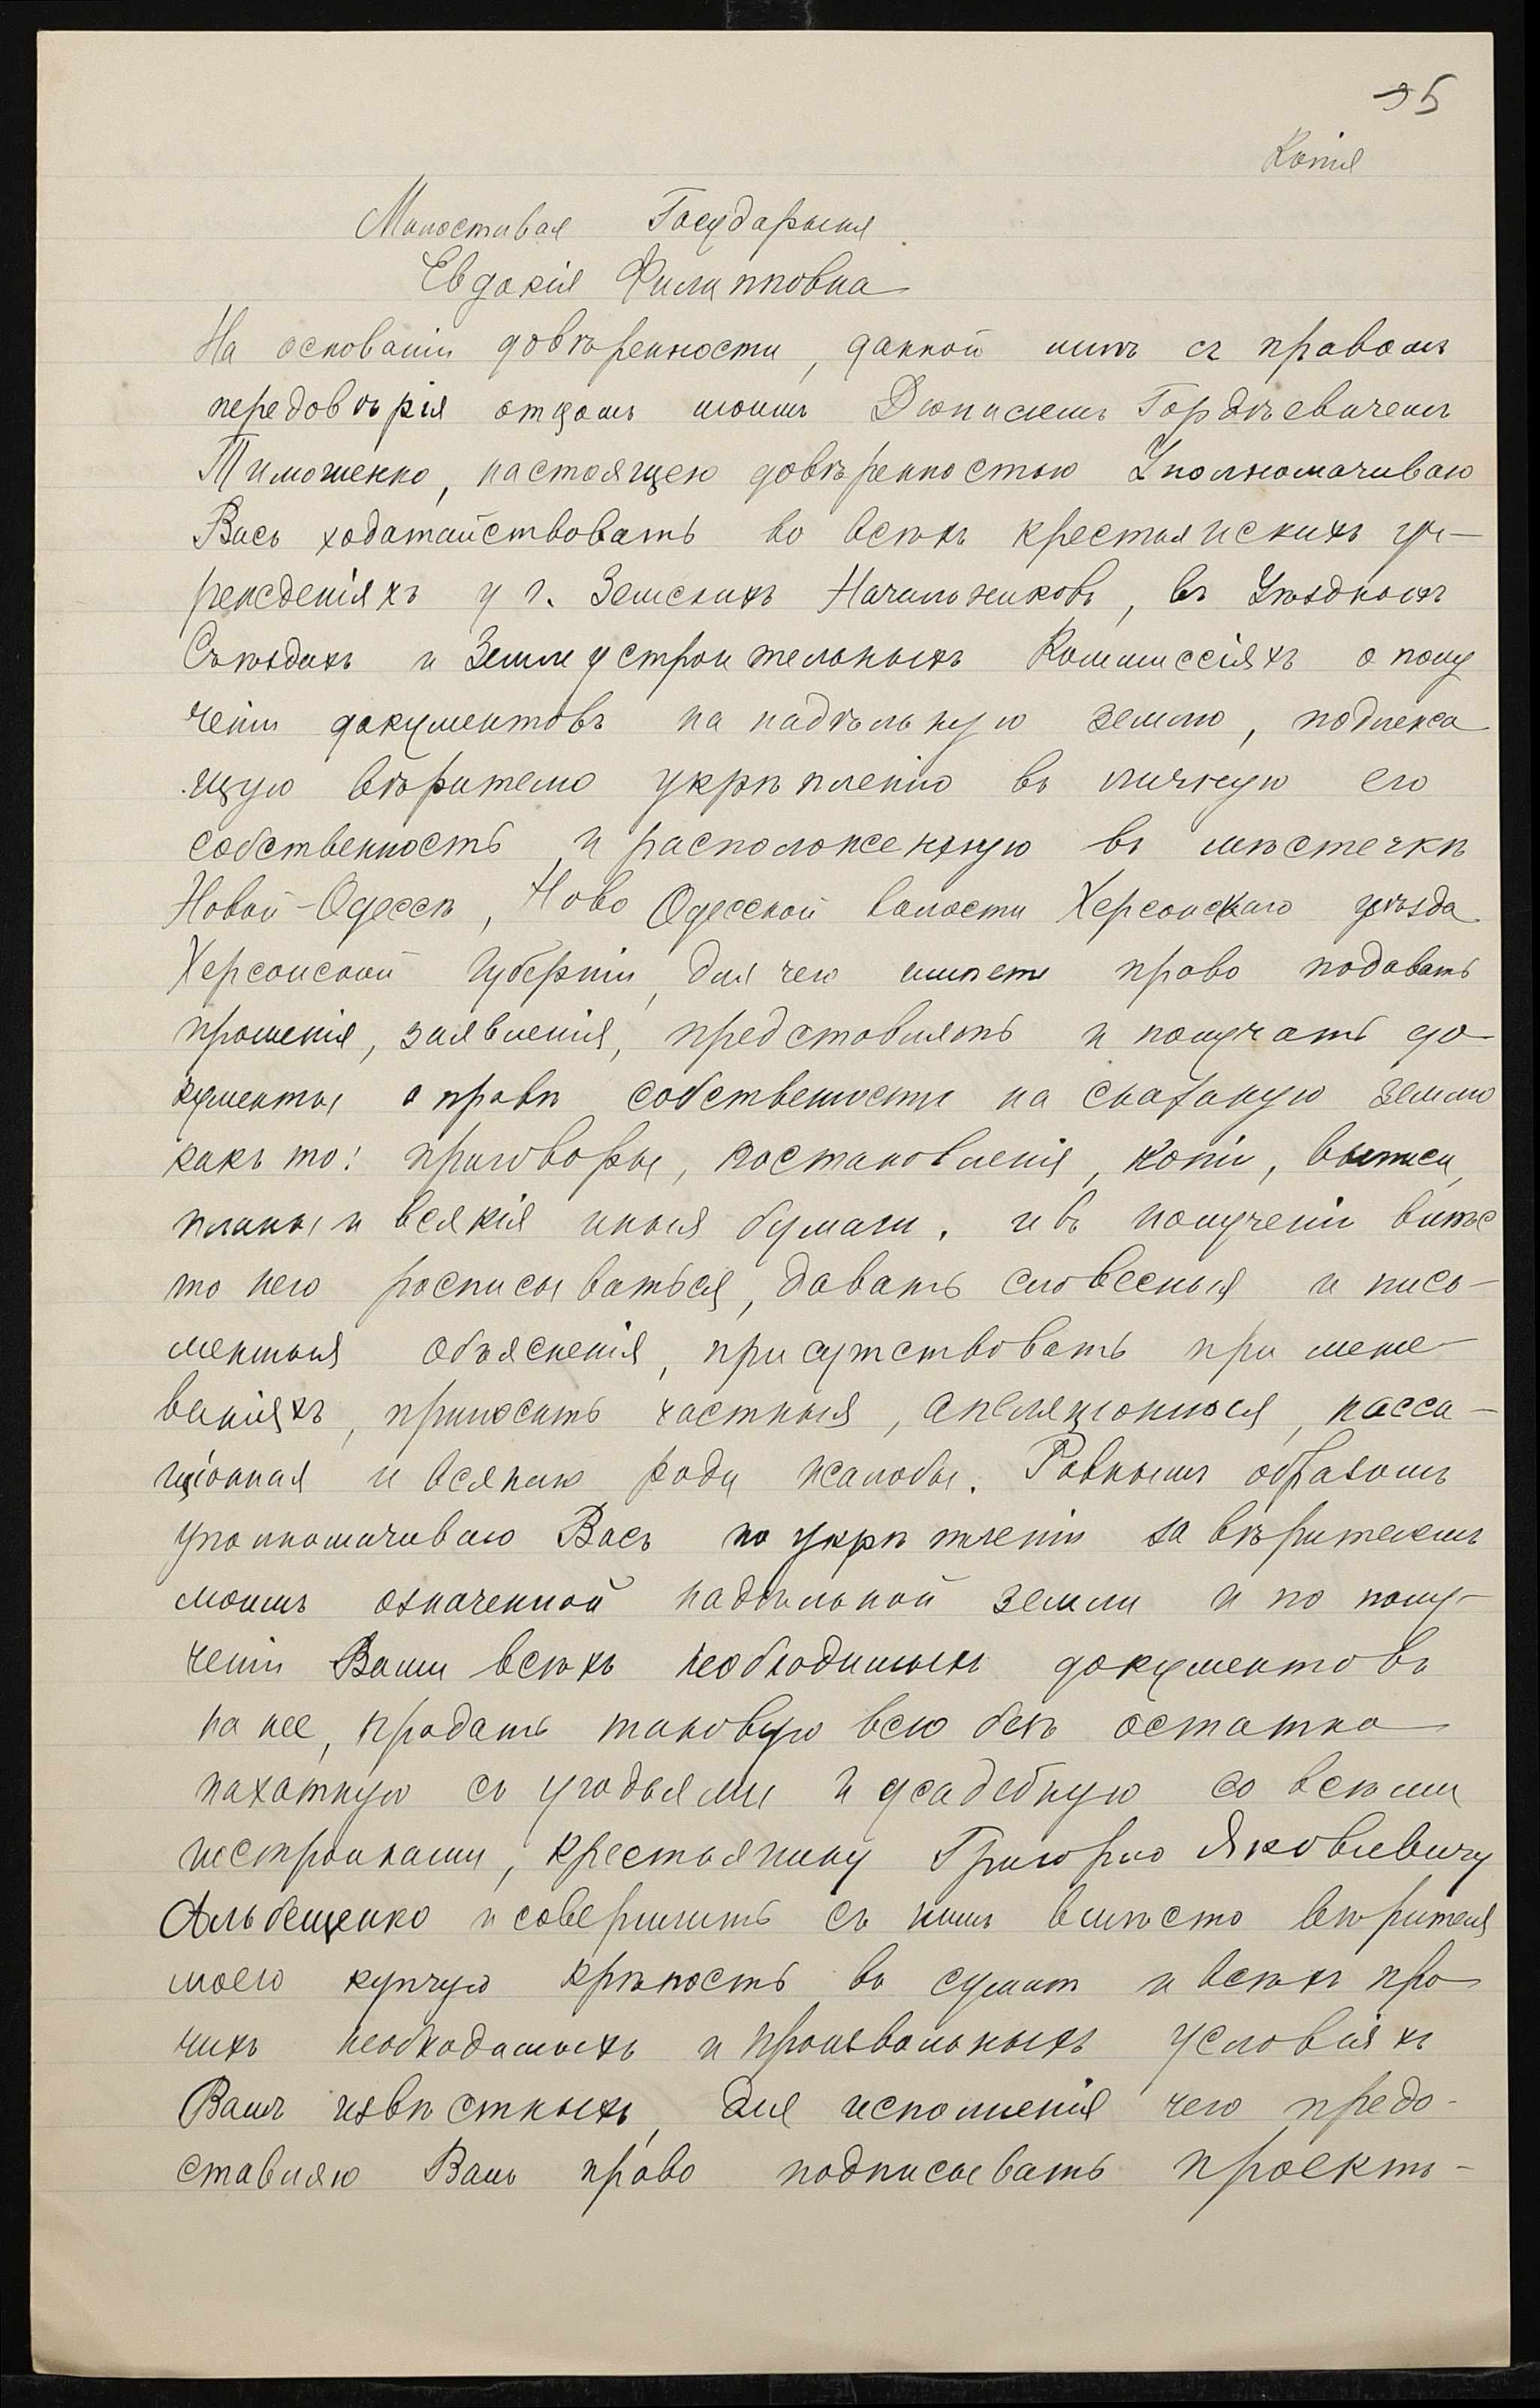 35
Копія
Милостивая Государыня
Евдокія Филипповна
На основаніи довѣренности, данной мнѣ съ правомъ
передовѣрія отцомъ моимъ Діонисіемъ Гордѣевичемъ
Тимошенко, настоящею довѣренностью Уполномачиваю
Васъ ходатайствовать во всѣхъ крестьянскихъ уч-
режденіяхъ у г. Земскихъ Начальниковъ, въ Уѣздномъ
Съѣздахъ и Землеустроительныхъ Коммиссіяхъ о полу
ченіи документовъ на надѣльную землю, подлежа
щую вѣрителю укрѣпленію въ личную его
собственность и расположенную въ мѣстечкѣ
Новой-Одессѣ, Ново Одесской волости Херсонскаго уѣзда
Херсонской Губерніи, для чего имѣете право подавать
прошенія, заявленія, представлять и получать до-
кументы о правѣ собственности на сказаную землю
какъ то: приговоры, постановленія, копіи, выписи,
планы и всякія иныя бумаги, и въ полученіи вмѣс
то него росписываться, давать словесныя и пись-
менныя объясненія, присутствовать при меже-
ваніяхъ, приносить частныя, апеляціонныя, касса-
ціонная и всякаго рода жалобы. Равнымъ образомъ
уполномачиваю Васъ по укрѣпленіи за вѣрителемъ
моимъ означенной надѣльной земли и по полу-
ченіи Вами всѣхъ необходимыхъ документовъ
на нее, продать таковую всю безъ остатка
пахатную съ угодьями и усадебную со всѣми
постройками, крестьянину Григорію Яковлевичу
Альбещенко и совершить съ нимъ вмѣсто вѣрителя
моего купчую крѣпость въ суммѣ и всѣхъ про
чихъ необходимыхъ и произвольныхъ условіяхъ
Вамъ извѣстныхъ, для исполненія чего предо-
ставляю Вамъ право подписывать проектъ-